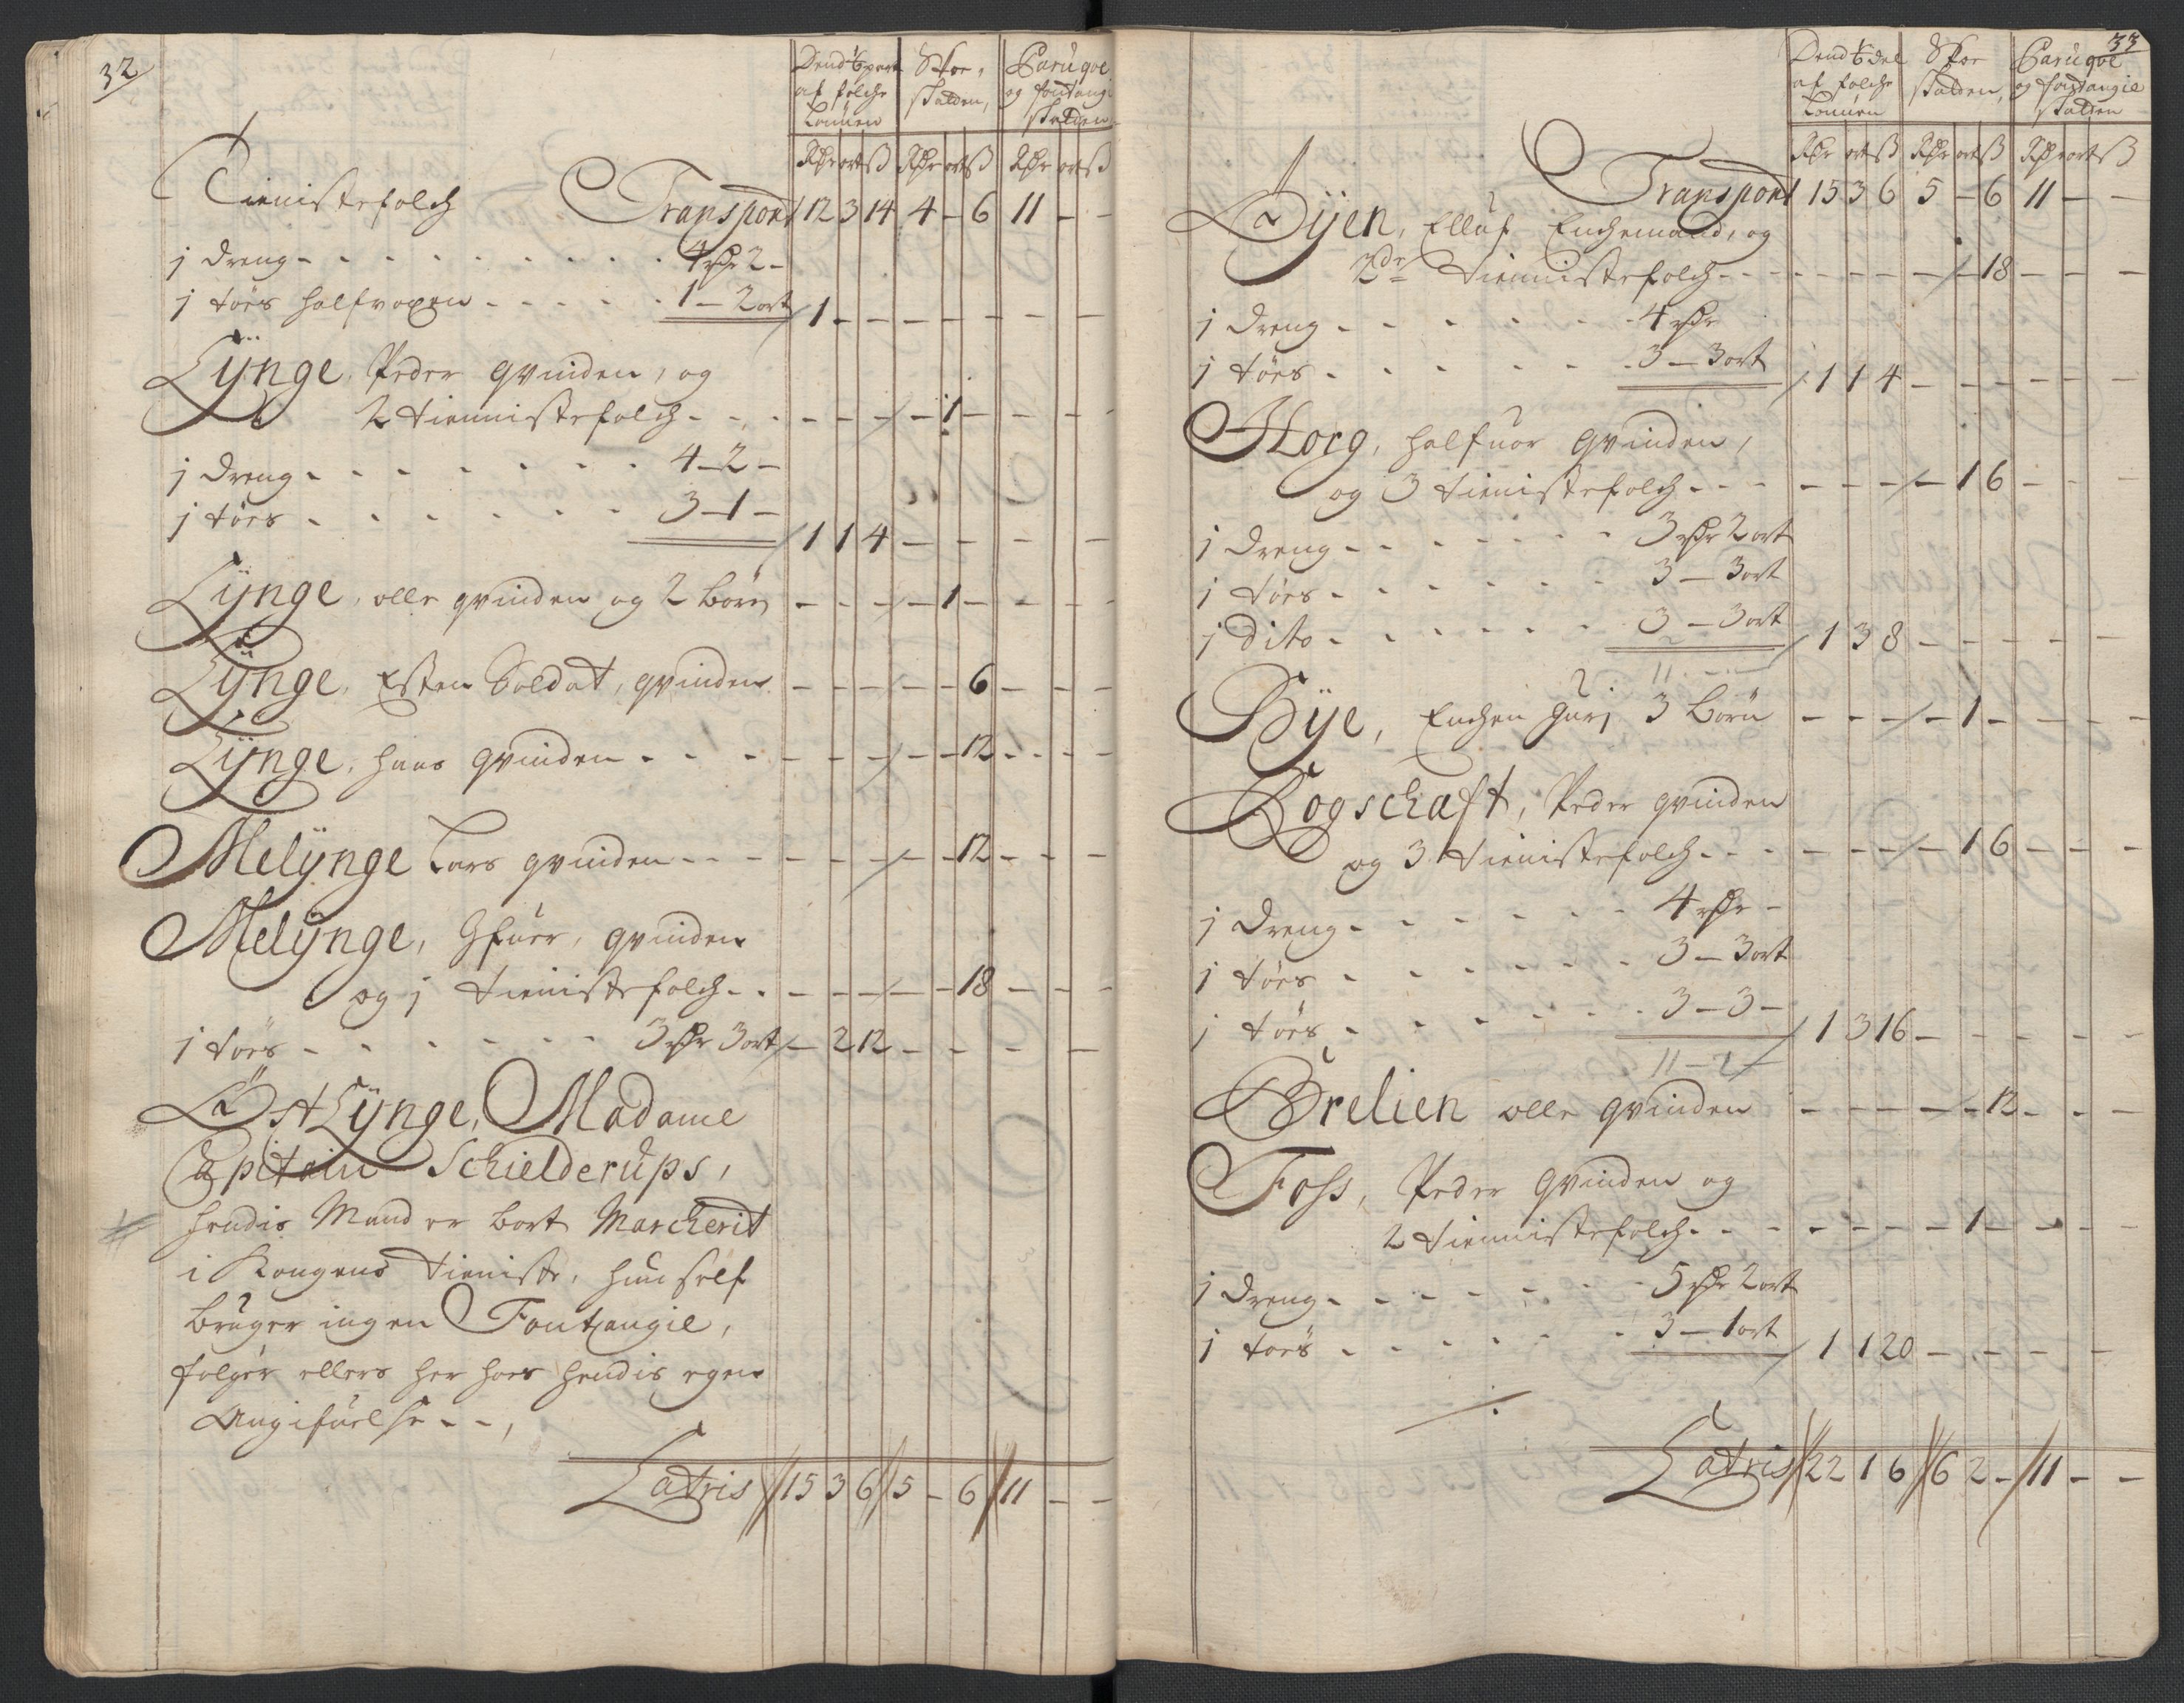 32
Dend 1/6 part af folche Lønnen | Skoe, skatten, | Paruqve og fontangie skatten
Rdr ort ß | Rdr ort ß | Rdr ort ß
Tienistefolch Transport 12 3 14 4 - 6 11 - -
j dreng - - - 4 rdr 2 -
j töes halfvoxen - - - 1 - 2 ort / 1 - - - - - - - -
Lÿnge, Peder qvinden, og
2 tiennistefolch - - - - - - / - 1 - - - -
j dreng - - - 4 - 2 -
j töes - - - 3 - 1 -
/ 1 1 4 - - - - - -
Lÿnge, olle qvinden og 2 börn - - - / - 1 - - - -
Lÿnge, Esten Soldat, qvinden - - - / - - 6 - - -
Lÿnge, hans qvinden - - - - - - / - - 12 - - -
Melÿnge Lars qvinden - - - - - / - - 12 - - -
Melÿnge, Gfuer, qvinden
og j tienistefolch - - - - - / - - 18 - - -
j töes - - - 3 rdr 3 ort / - 2 12 - - - - - -
ÖstLÿnge, Madame
Capitain Schielderups,
hendis Mand er bort Marcherit
i Kongens Tieniste, hun self
bruger ingen Fontangie,
fölger ellers her hoes hendis egen
Angifuelse - - ,
Latris // 15 3 6 // 5 - 6 // 11 - -
33
Dend 1/6 del af folche Lønnen | Skoe skatten, | Paruqve og fontangie skatten
Rdr ort ß | Rdr ort ß | Rdr ort ß
Transport 15 3 6 5 - 6 11 - -
Öÿen, Elluf Enchemand, og
2de tiennistefolch - - - - - - - / - 18 - - -
j dreng - - - 4 rdr
j töes - - - 3 - 3 ort / 1 1 4 - - - - - -
Horg, halfuor qvinden,
og 3 tienistefolch - - - - - - / - 1 6 - - -
j dreng - - - 3 rdr 2 ort
j töes - - - 3 - 3 ort
j dito - - - 3 - 3 ort / 1 3 8 - - - - - -
11 - -
Bÿe, Enchen Guri 3 börn - - - / - 1 - - - -
Rogschaft, Peder qvinden
og 3 tienistefolch - - - - - - / - 1 6 - - -
j dreng - - - 4 rdr -
j töes - - - 3 - 3 ort
j töes - - - 3 - 3 - / 1 3 16 - - - - - -
11 - 2 -
Brelien olle qvinden - - - - / - 12 - - -
Foss, Peder qvinden og
2 tiennistefolch - - - - - - - 1 - - - -
j dreng - - - 5 rdr 2 ort
j töes - - - 3 - 1 ort / 1 1 20 - - - - -
Latris // 22 1 6 // 6 2 - / 11 - -